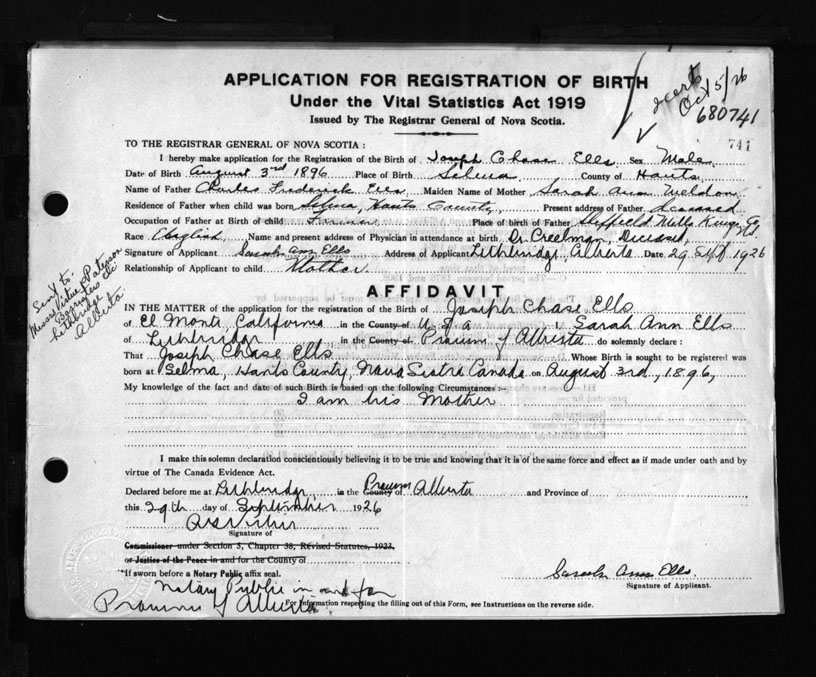 APPLICATION FOR REGISTRATION OF BIRTH
Under the Vital Statistics Act 1919
Issued by The Registrar General of Nova Scotia.
Oct 5/26
680741
741
TO THE REGISTRAR GENERAL OF NOVA SCOTIA:
I hereby make application for the Registration of the Birth of Joseph Chase Ells Sex Male
Date of Birth August 3rd 1896 Place of Birth Selma County of Hants
Name of Father Charles Frederick Ells Maiden Name of Mother Sarah Ann Weldon
Residence of Father when child was born Selma, Hants County, Present address of Father deceased
Occupation of Father at Birth of child Farmer Place of birth of Father Sheffield Mills Kings Co
Race English Name and present address of Physician in attendance at birth Dr. Creelman, Deceased,
Signature of Applicant Sarah Ann Ells Address of Applicant Lethbridge, Alberta Date 29 Sept 1926
Relationship of Applicant to child Mother
Sent to:
Messrs Virtue & Paterson
Barristers etc
Lethbridge
Alberta
AFFIDAVIT
IN THE MATTER of the application for the registration of the Birth of Joseph Chase Ells
of El Monte California in the County of U S a I, Sarah Ann Ells
of Lethbridge in the County of Province of Alberta do solemnly declare:
That Joseph Chase Ells Whose Birth is sought to be registered was
born at Selma, Hants County, Nova Scotia Canada on August 3rd, 1896,
My knowledge of the fact and date of such Birth is based on the following Circumstances:-
I am his Mother
I make this solemn declaration conscientiously believing it to be true and knowing that it is of the same force and effect as if made under oath and by
virtue of The Canada Evidence Act.
Declared before me at Lethbridge in the County of Province Alberta and Province of
this 29th day of September 1926
Signature of
Commissioner under Section 5, Chapter 38, Revised Statutes, 1923,
or Justice of the Peace in and for the County of
*If sworn before a Notary Public affix seal.
Notary Public in and for
Province of Alberta
Sarah Ann Ells
Signature of Applicant.
For Information respecting the filling out of this Form, see Instructions on the reverse side.